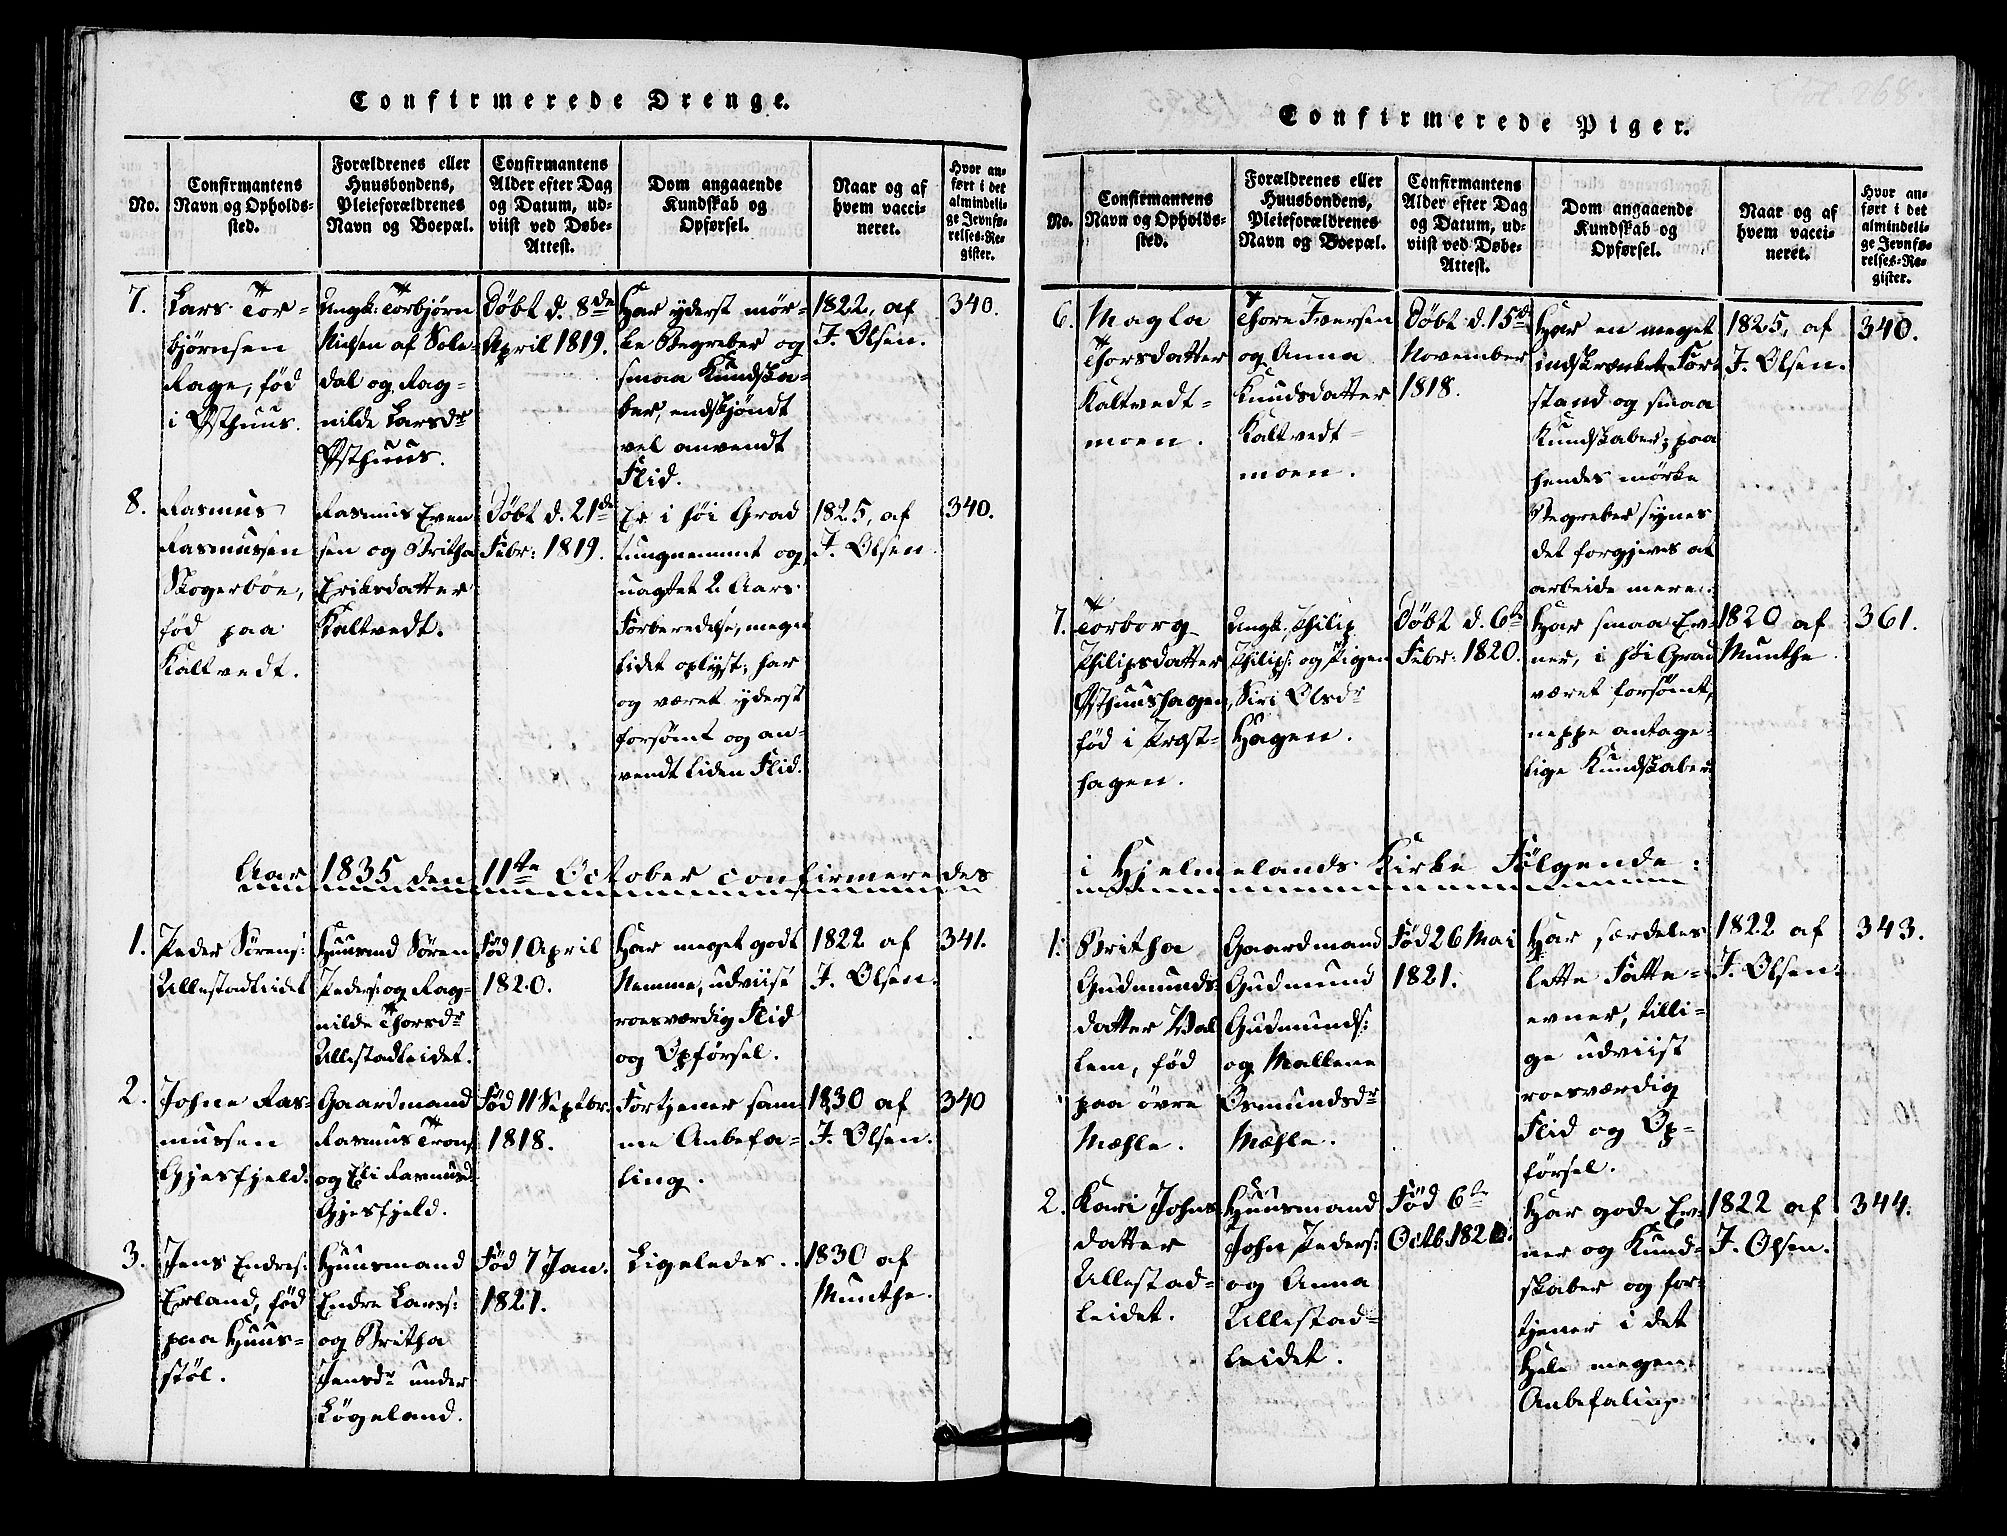 Confirmerede Drenge.
No.
Confirmantens
Navn og Opholds-
sted.
Forældrenes eller
Huusbondens,
Pleieforældrenes
Navn og Boepæl.
Confirmantens
Alder efter Dag
og Datum, ud-
viist ved Døbe-
Attest.
Dom angaaende
Kundskab og
Opførsel.
Naar og af
hvem vacci-
neret.
Hvor an-
ført i det
almindeli-
ge Jevnfø-
relses-Re-
gister.
7.
Lars Tor-
bjørnsen
Rage, fød
i Østhuus.
Ungk: Torbjørn
Nielsen af Sole-
dal og Rag-
nilde Larsdr
Østhuus.
Døbt d. 8de
April 1819.
Har yderst mör-
ke Begreber og
smaa Kundska-
ber, endskjöndt
vel anvendt
Flid.
1822, af
J. Olsen.
340.
8.
Rasmus
Rasmussen
Skogerböe,
född paa
Kaltvedt.
Rasmus Even
sen og Britha
Eriksdatter
Kaltvedt.
Döbt d. 21de
Febr: 1819.
Er i höi Grad
tungnemmt og,
uagtet 2 Aars
Forberedelse, meget
lidet oplyst; har
og været yderst
forsömt og an-
vendt liden Flid.
1825, af
J. Olsen.
340.
Aar 1835 den 11te October confirmeredes
1.
Peder Sörens:
Ullestadleidet
Huusmd Sören
Peders: og Rag-
nilde Thorsdr
Ullestadleidet.
Fød 1 April
1820.
Har meget godt
Nemme, udviist
roesværdig Flid
og Opförsel.
1822 af
J. Olsen.
341.
2.
Johne Ras-
mussen
Gjesfjeld.
Gaardmand
Rasmus Trons
og Eli Rasmusd
Gjesfjeld.
Fød 11 Septbr.
1818.
Fortjener sam
me Anbefa-
ling.
1830 af
J. Olsen.
340
3.
Jens Endres:
Erland, fød
paa Huus-
støl.
Huusmand
Endre Larss:
og Britha
Jensdr under
Løgeland.
Fød 7 Jan.
1821.
Ligeledes.
1830 af
Munthe.
Confirmerede Piger.
No.
Confirmantens
Navn og Opholds-
sted.
Forældrenes eller
Huusbondens,
Pleieforældrenes
Navn og Boepæl.
Confirmantens
Alder efter Dag
og Datum, ud-
viist ved Døbe-
Attest.
Dom angaaende
Kundskab og
Opførsel.
Naar og af
hvem vacci-
neret.
Hvor an-
ført i det
almindeli-
ge Jevnfø-
relses-Re-
gister.
6.
Magla
Thorsdatter
Kaltvedt-
moen.
Thore Iversen
og Anna
Knudsdatter
Kaltvedt-
moen.
Döbt d. 15de
November
1818.
Har en meget
indskrænket For-
stand og smaa
Kundskaber; paa
hendes mörke
Begreber synes
det forgjeves at
arbeide mere.
1825, af
J. Olsen.
340.
7.
Torborg
Philipsdatter
Østhuushagen,
fød i Præst-
hagen.
Ungk. Philip
Philips: og Pigen
Siri Olsdr
Hagen.
Döbt d. 6te
Febr: 1820.
Har smaa Ev-
ner, i höi Grad
været forsömt,
neppe antage-
lige Kundskaber
1820 af
Munthe
361.
i Hjelmelands Kirke Følgende:
1.
Britha
Gudmunds-
datter Val
lem, fød
paa övre
Mæhle.
Gaardmand
Gudmund
Gudmunds:
og Mallene
Osmundsdr
Mæhle.
Fød 26 Mai
1821.
Har særdeles
lette Fatte-
evner, tilli-
ge udviist
roesværdig
Flid og Op-
försel.
1822 af
J. Olsen.
343.
2.
Kari Johns
datter
Ullestad-
leidet.
Huusmand
John Peders:
og Anna
Ullestad-
leidet.
Fød 6te
Octb.
Har gode Ev-
ner og Kund-
skaber og for-
tjener i det
Hele megen
Anbefaling
1822 af
J. Olsen.
344.